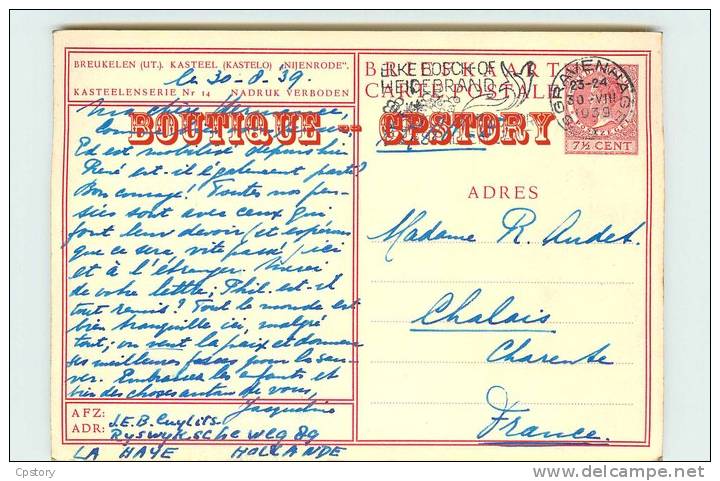 BREUKELEN (UT.) KASTEEL (KASTELO) "NIJENRODE".
le 30-8-39.
KASTEELENSERIE Nr 14 NADRUK VERBODEN
Ma chère Hermance,
BOUTIQUE -- CPSTORY
Ed est mobilisé depuis hier
René est-il également parti?
Bon courage! Toutes nos pen-
sées sont avec ceux qui
font leur devoir, et espérons
que ce sera vite passé, ici
et à l'étranger. Merci
de votre lettre; Phil. est-il
tout remis? Tout le monde est
bien tranquille ici, malgré
tout; on veut la paix et donnera
ses meilleures forces pour la sau-
ver. Embrassez les enfants et
bien des choses autour de vous,
Jacqueline
AFZ:
ADR:
J.E.B. Cuylits
Ryswyk.sche weg 89
LA HAYE HOLLANDE
BRIEFKAART
CARTE POSTALE
ELKE BOSCH- OF
HEIDEBRAND
'S GRAVENHAGE
23-24
30 VIII
1939
7½ CENT
ADRES
Madame R. Audet.
Chalais
Charente
France.
Cpstory
delcampe.net